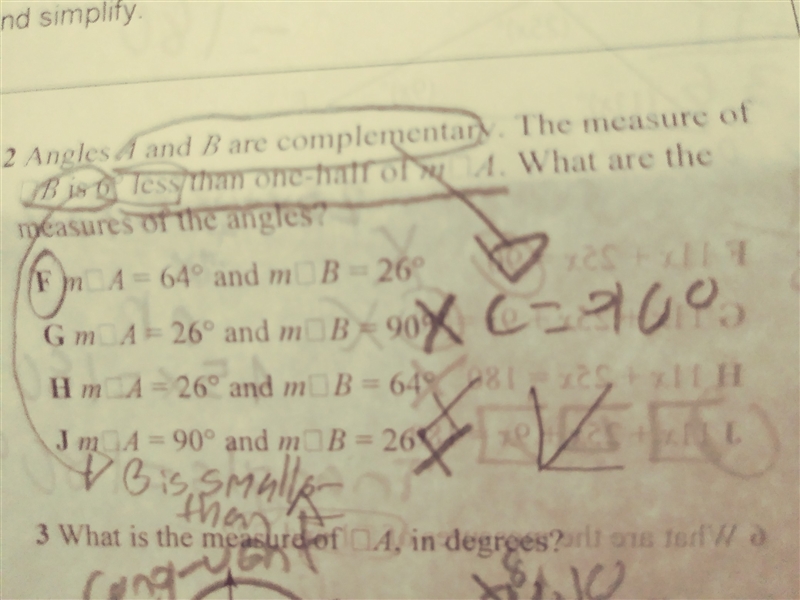 nd simplify.
2 Angles A and B are complementary. The measure of
□B is 6° less than one-half of m□A. What are the
measures of the angles?
F m□A = 64° and m□B = 26°
G m□A = 26° and m□B = 90°
C = 90°
H m□A = 26° and m□B = 64°
J m□A = 90° and m□B = 26°
B is smaller
than A
3 What is the measure of □A, in degrees?